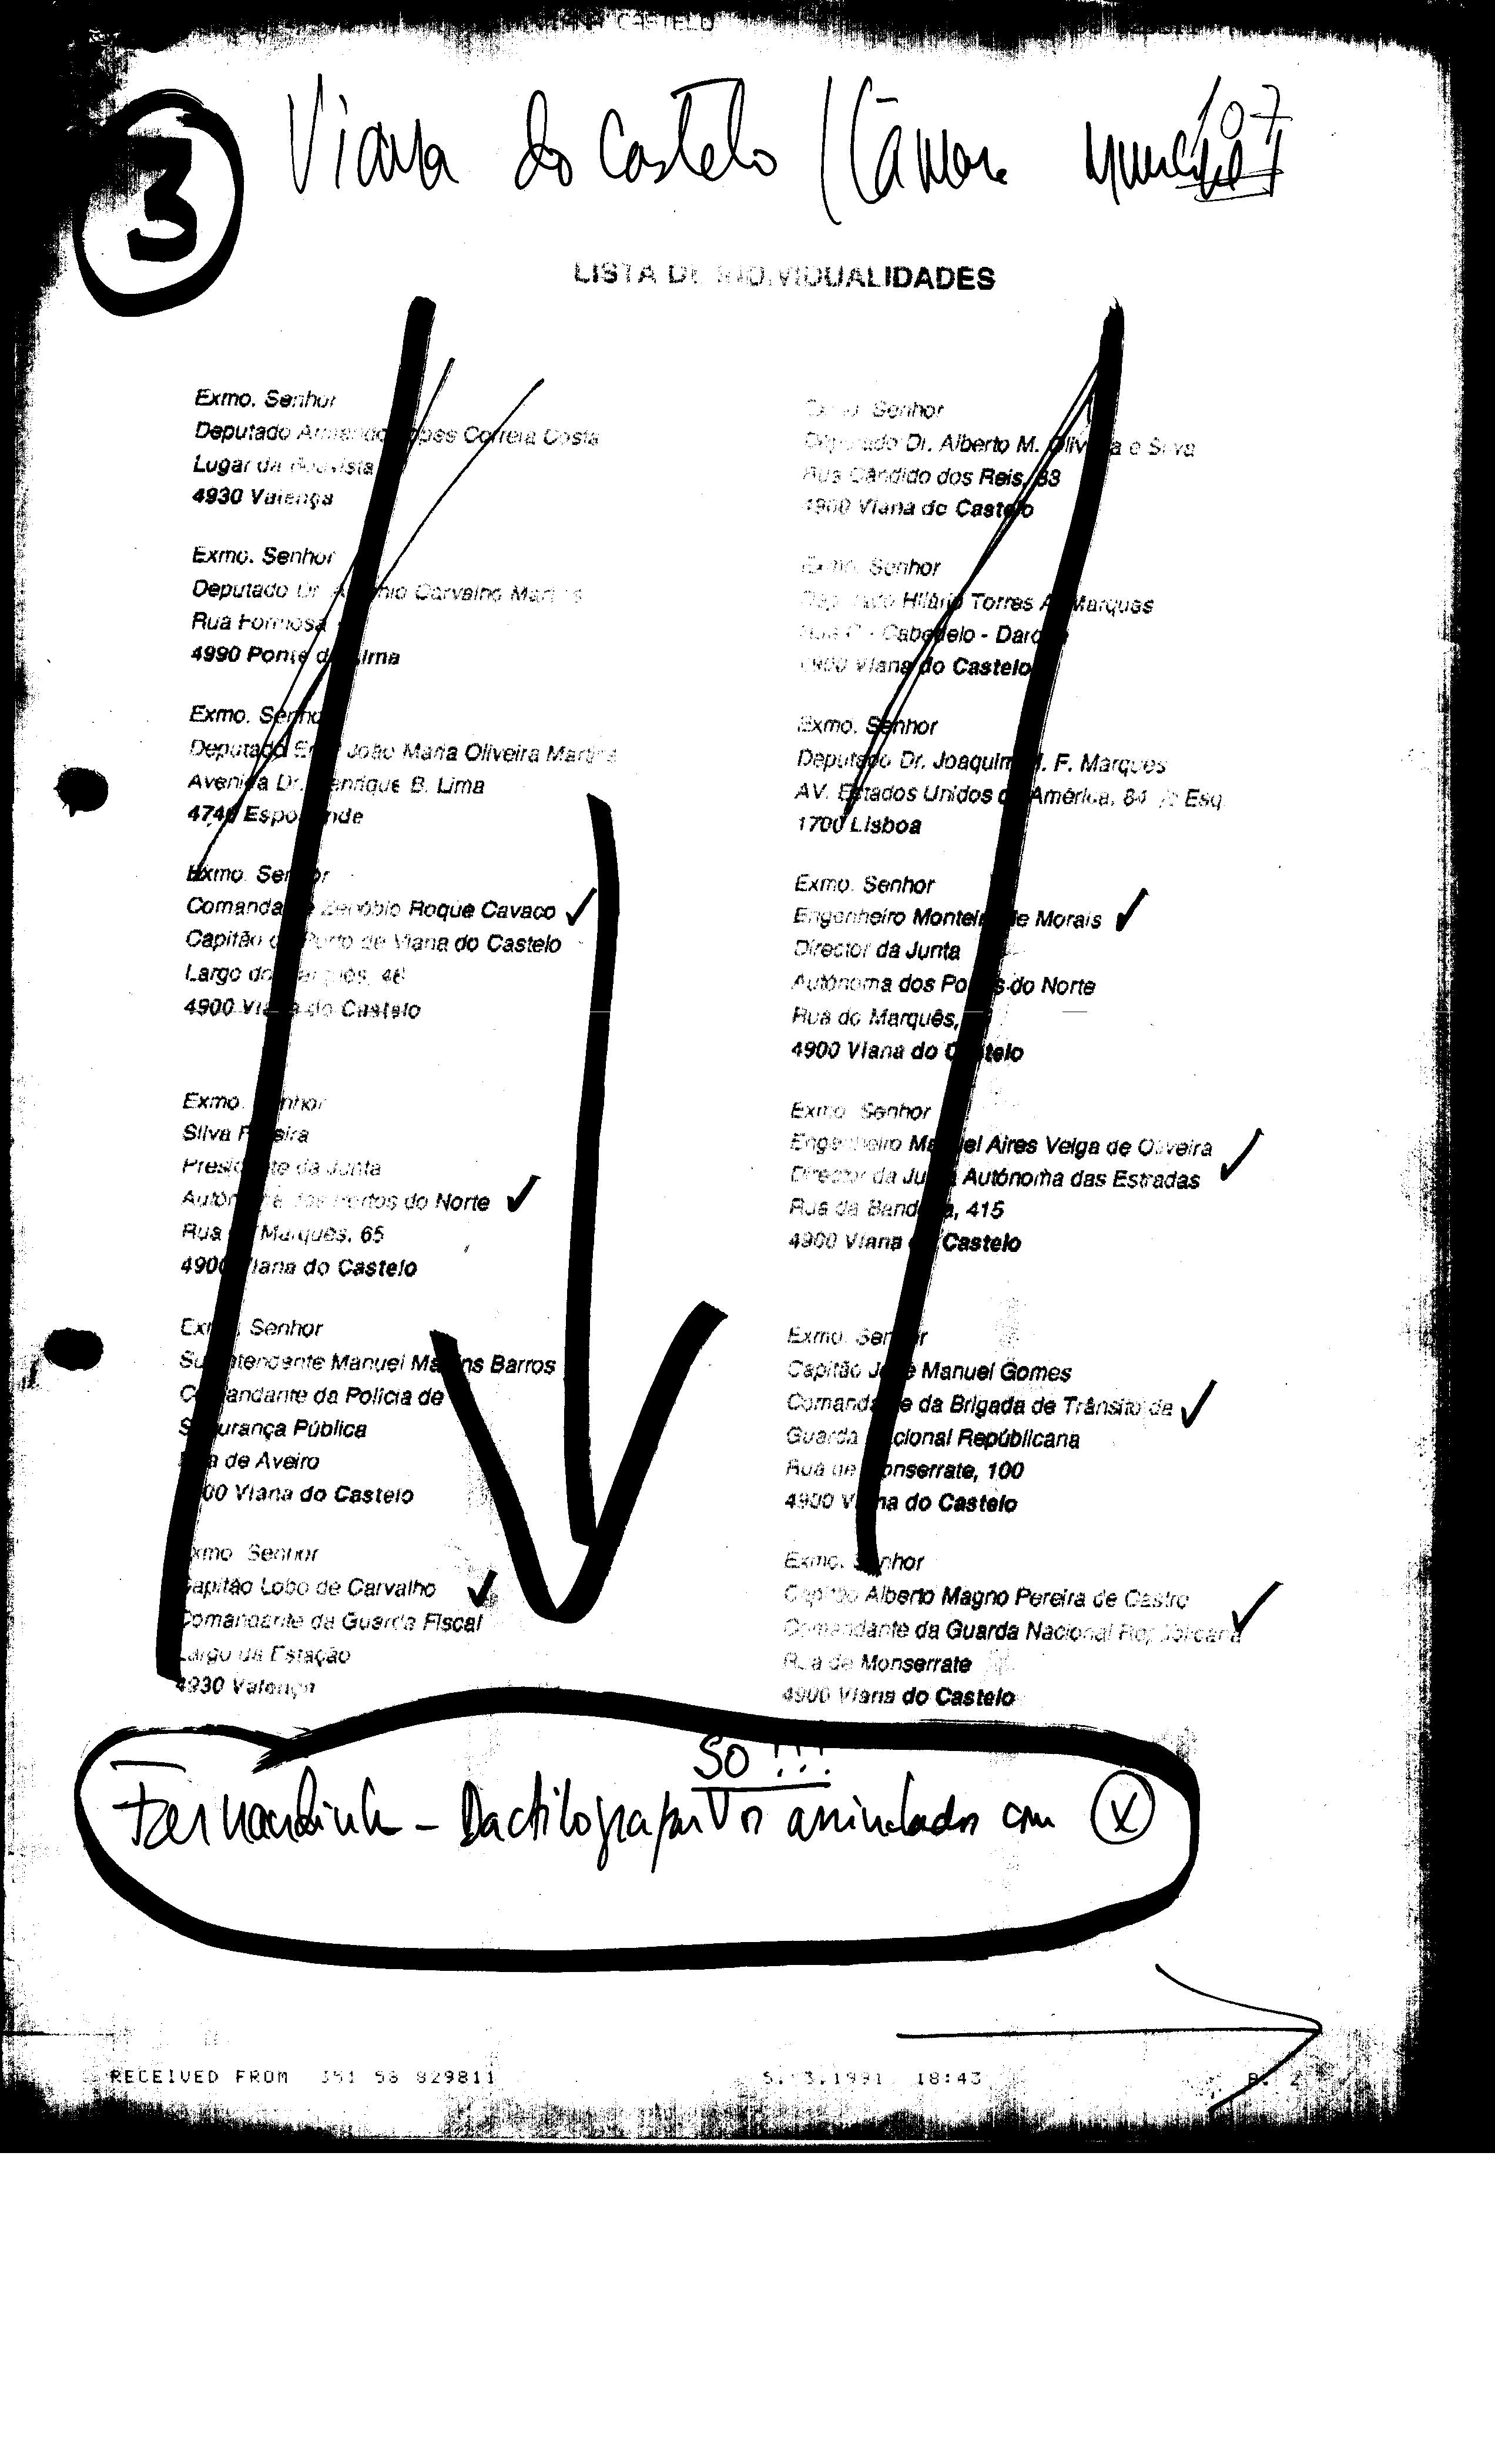 CASTELO
3
Viana do Castelo / Câmara Municipal
107
LISTA DE INDIVIDUALIDADES
Exmo. Senhor
Deputado Armando Lopes Correia Costa
Lugar da
4930 Valença
Exmo. Senhor
Deputado Dr. António Carvalho Martins
Rua Formosa
4990 Ponte de Lima
Exmo. Senhor
Deputado Engº João Maria Oliveira Martins
Avenida Dr. Henrique B. Lima
4740 Esposende
Exmo. Senhor
Comandante Zenóbio Roque Cavaco ✓
Capitão do Porto de Viana do Castelo
Largo do 46
4900 Viana do Castelo
Exmo. Senhor
Silva
Presidente da Junta
Autónoma dos Portos do Norte ✓
Rua do Marquês, 65
4900 Viana do Castelo
Exmo. Senhor
Superintendente Manuel Martins Barros
Comandante da Polícia de
Segurança Pública
Rua de Aveiro
4900 Viana do Castelo
Exmo. Senhor
Capitão Lobo de Carvalho ✓
Comandante da Guarda Fiscal
Largo da Estação
4930 Valença
Exmo. Senhor
Deputado Dr. Alberto M. Oliveira e Silva
Rua Cândido dos Reis, 83
4900 Viana do Castelo
Exmo. Senhor
Deputado Hilário Torres A. Marques
Rua - Cabedelo - Darque
4900 Viana do Castelo
Exmo. Senhor
Deputado Dr. Joaquim F. Marques
AV. Estados Unidos da América, 84 Esq
1700 Lisboa
Exmo. Senhor
Engenheiro Monteiro de Morais ✓
Director da Junta
Autónoma dos Portos do Norte
Rua do Marquês,
4900 Viana do Castelo
Exmo. Senhor
Engenheiro Manuel Aires Veiga de Oliveira ✓
Director da Junta Autónoma das Estradas
Rua da Bandeira, 415
4900 Viana do Castelo
Exmo. Senhor
Capitão José Manuel Gomes
Comandante da Brigada de Trânsito da ✓
Guarda Nacional Républicana
Rua de Monserrate, 100
4900 Viana do Castelo
Exmo. Senhor
Capitão Alberto Magno Pereira de Castro
Comandante da Guarda Nacional Républicana ✓
Rua de Monserrate
4900 Viana do Castelo
SÓ !!!
Fernandinha - Dactilografar V os assinalados com X
RECEIVED FROM 351 58 829811 5. 3.1991 18:43 P. 2